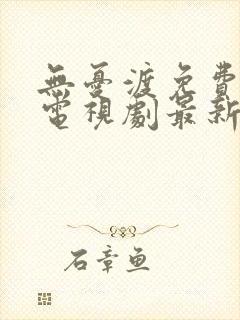 無憂渡免費
電視劇最新
石章鱼